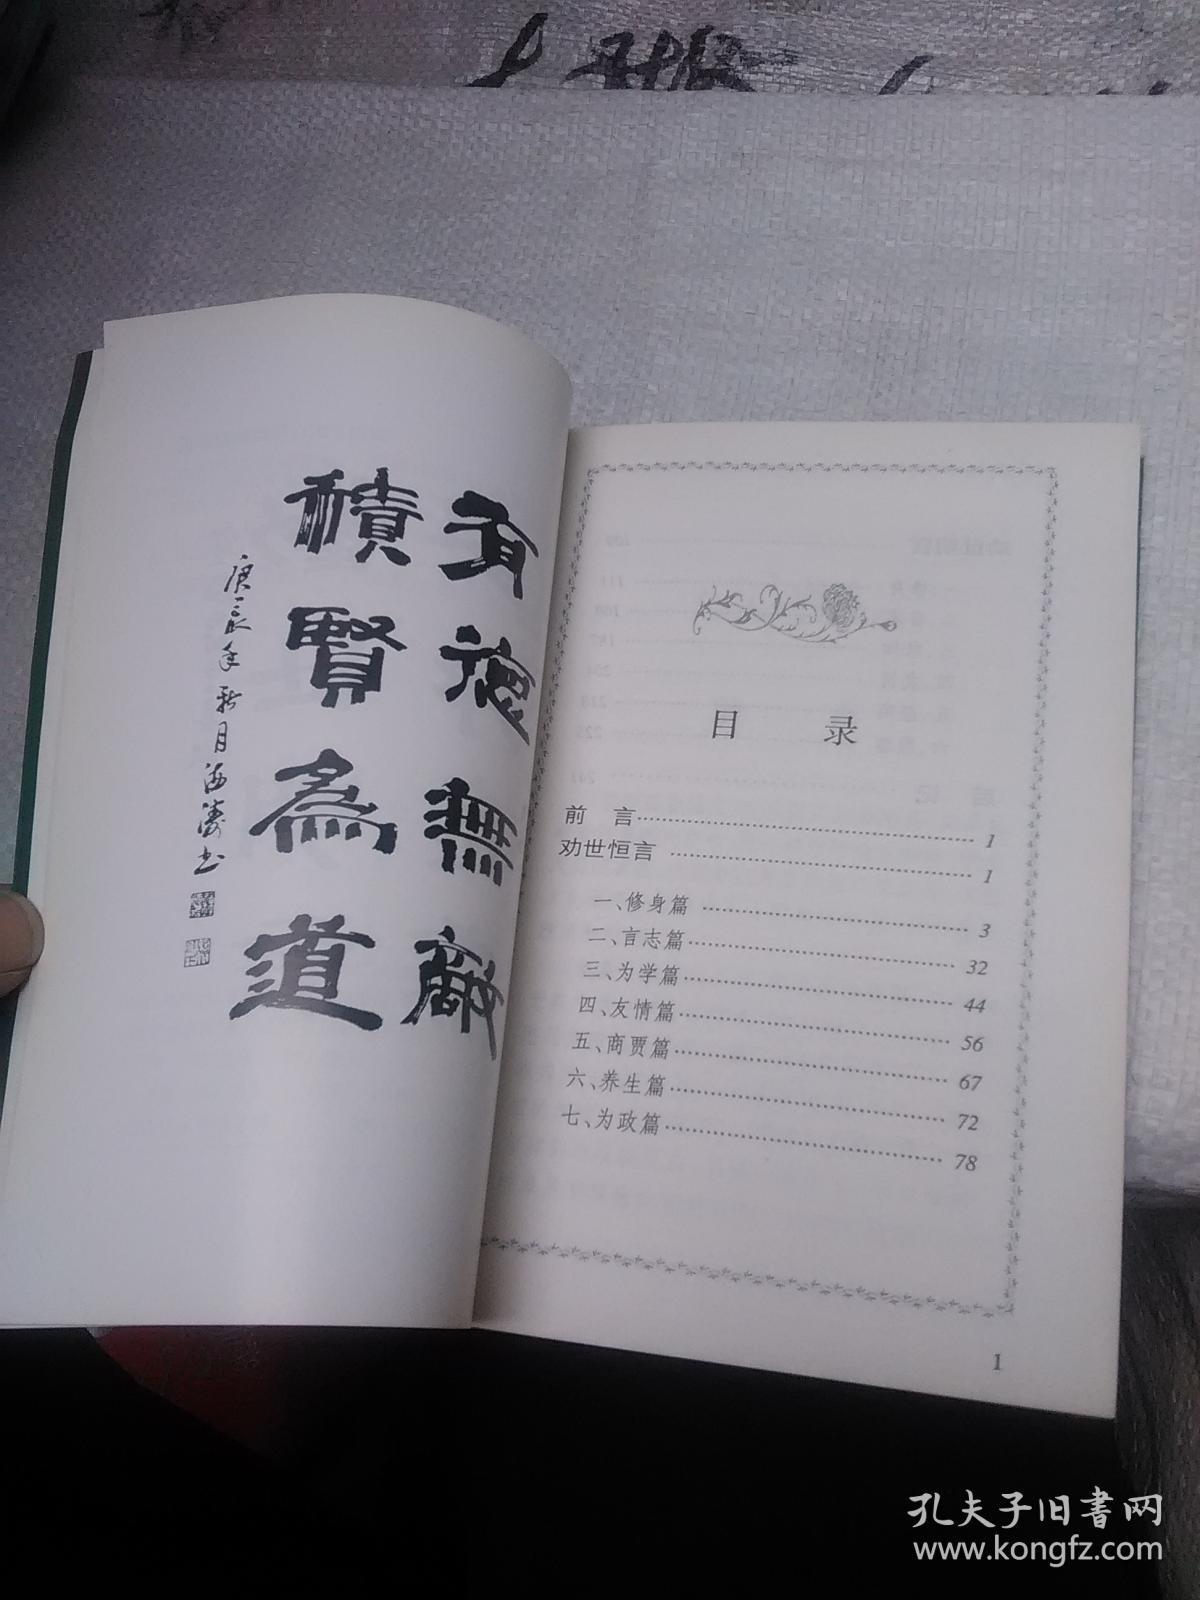 有德無敵
積賢為道
庚辰年新月海濤书
目 录
前 言 1
劝世恒言 1
一、修身篇 3
二、言志篇 32
三、为学篇 44
四、友情篇 56
五、商贾篇 67
六、养生篇 72
七、为政篇 78
1
孔夫子旧书网
www.kongfz.com